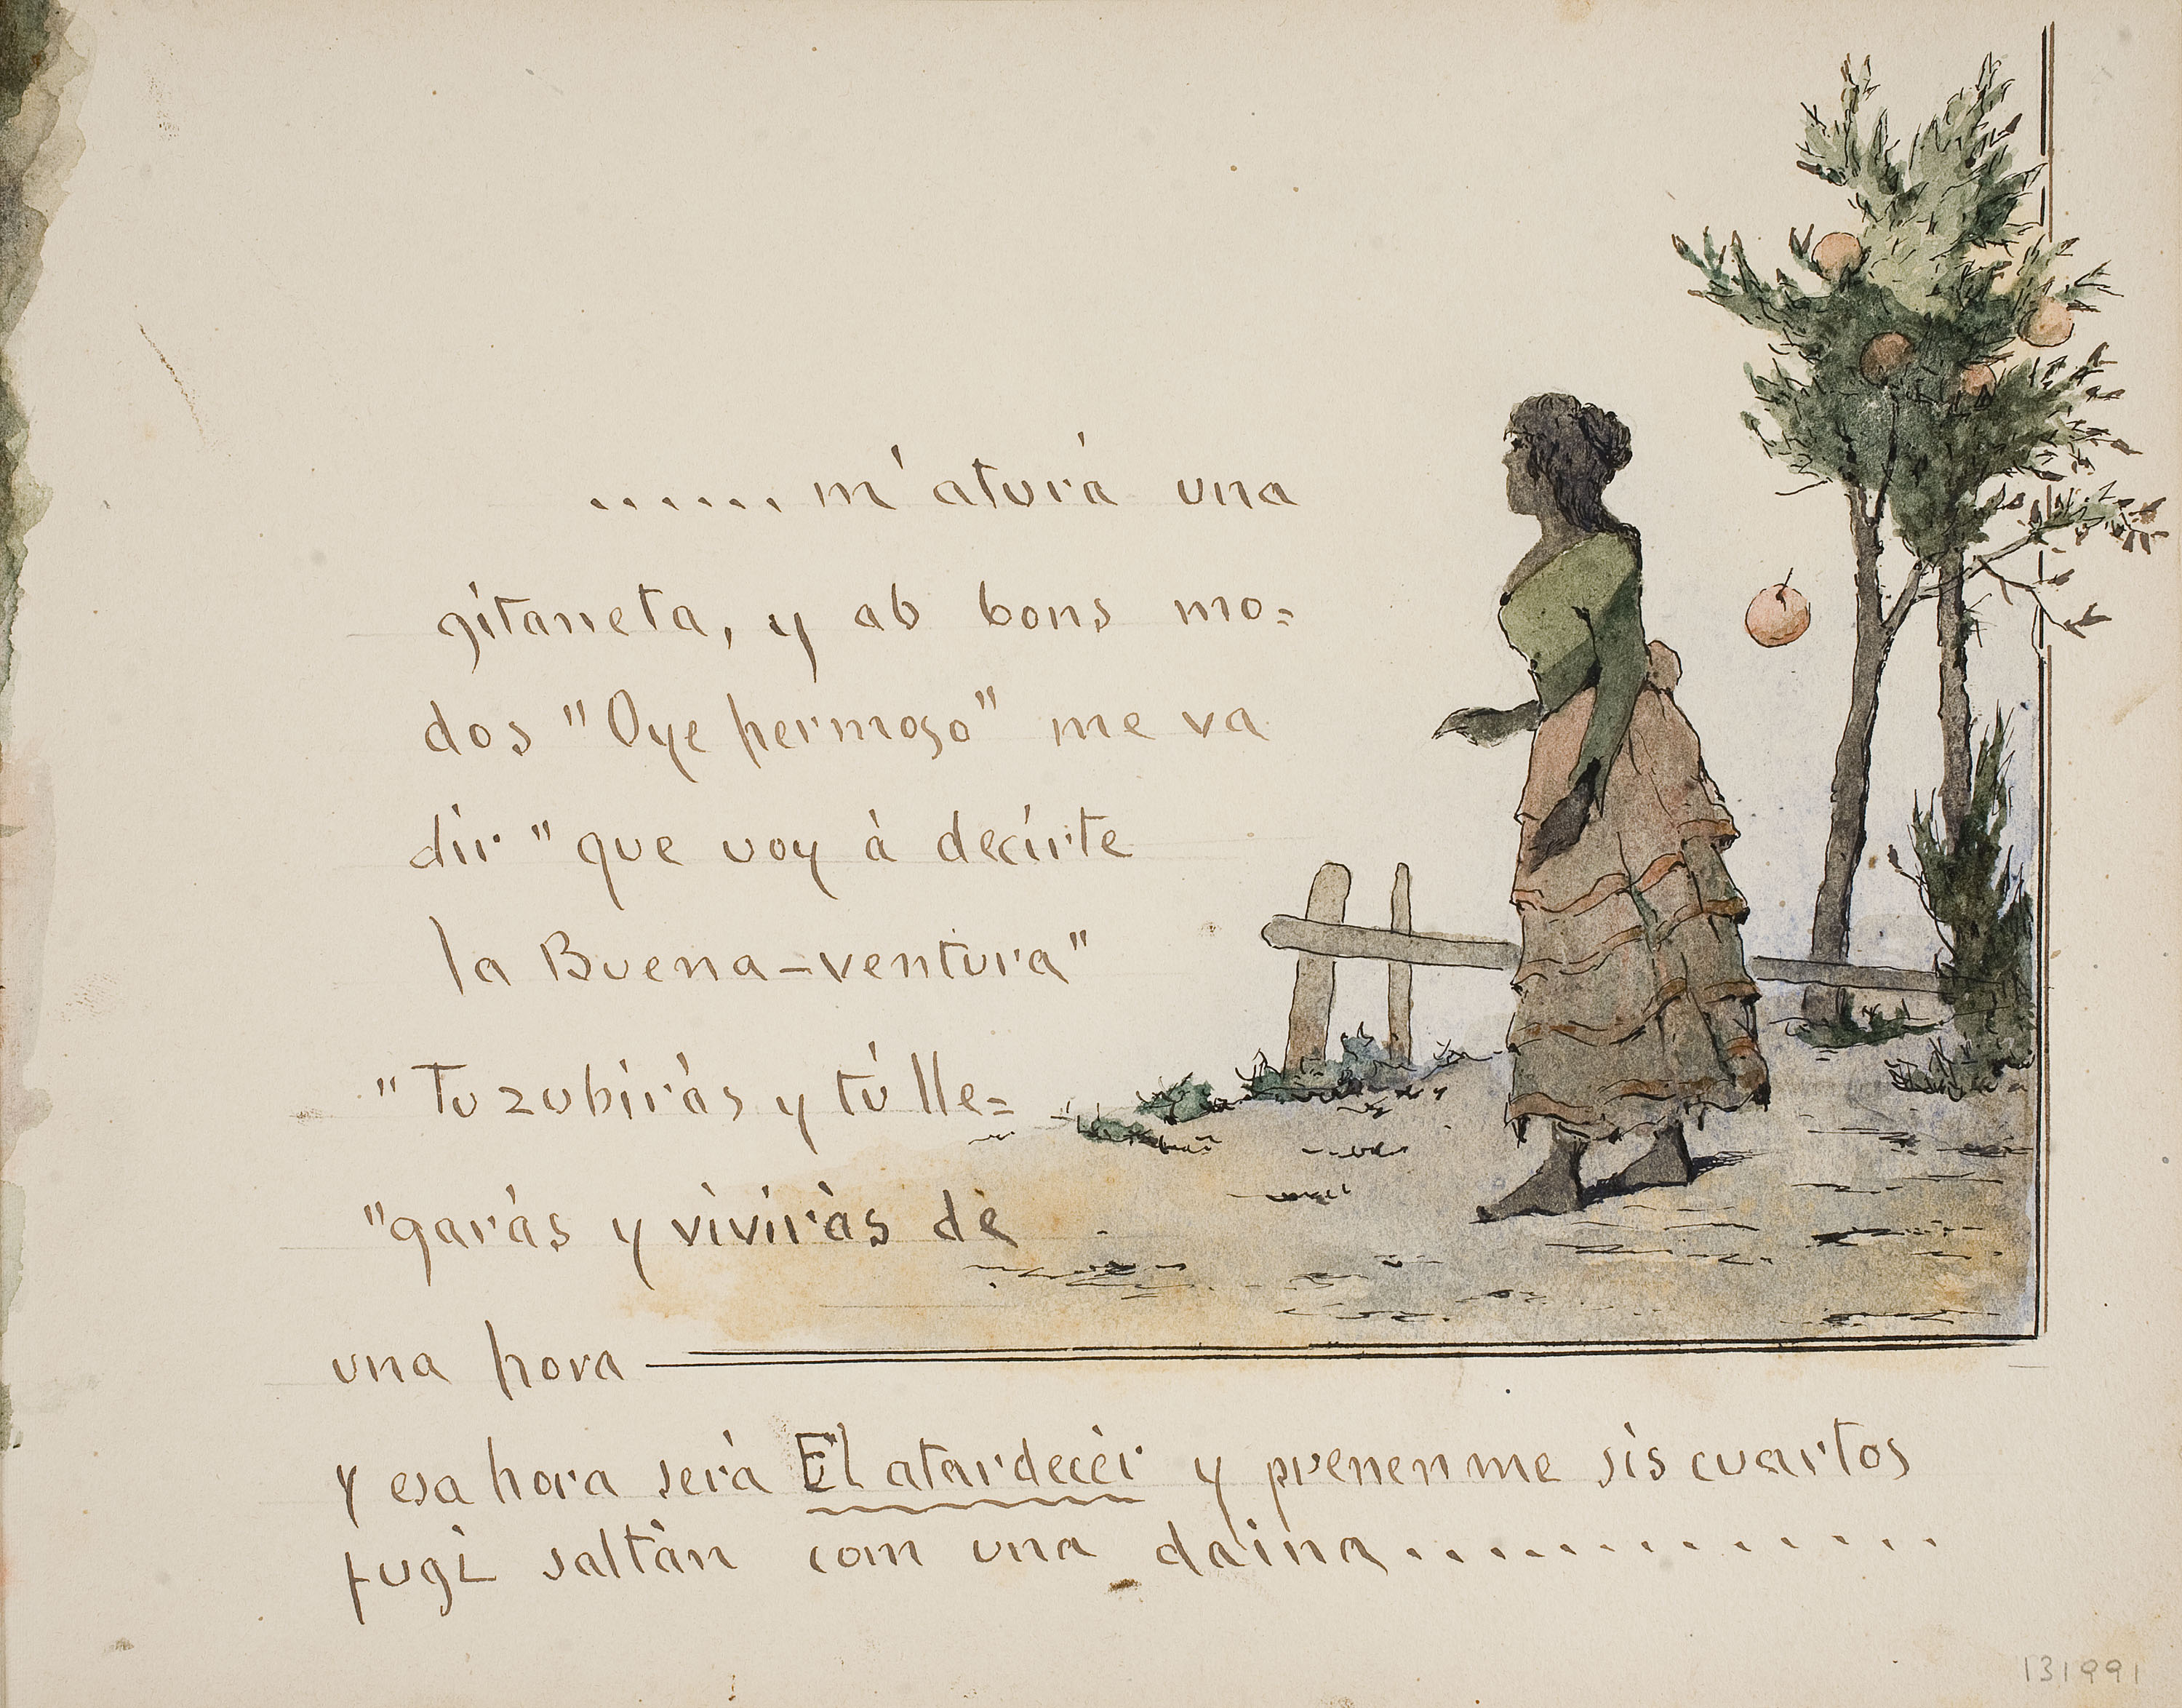 ...... m' aturá una
gitaneta, y ab bons mo=
dos "Oye hermoso" me va
dir "que voy á decirte
la Buena-ventura"
"Tu zubirás y tú lle=
"garás y vivirás de
una hora
Y esa hora será El atardecer y prenenme sis cuartos
fugí saltán com una daina..............
131991